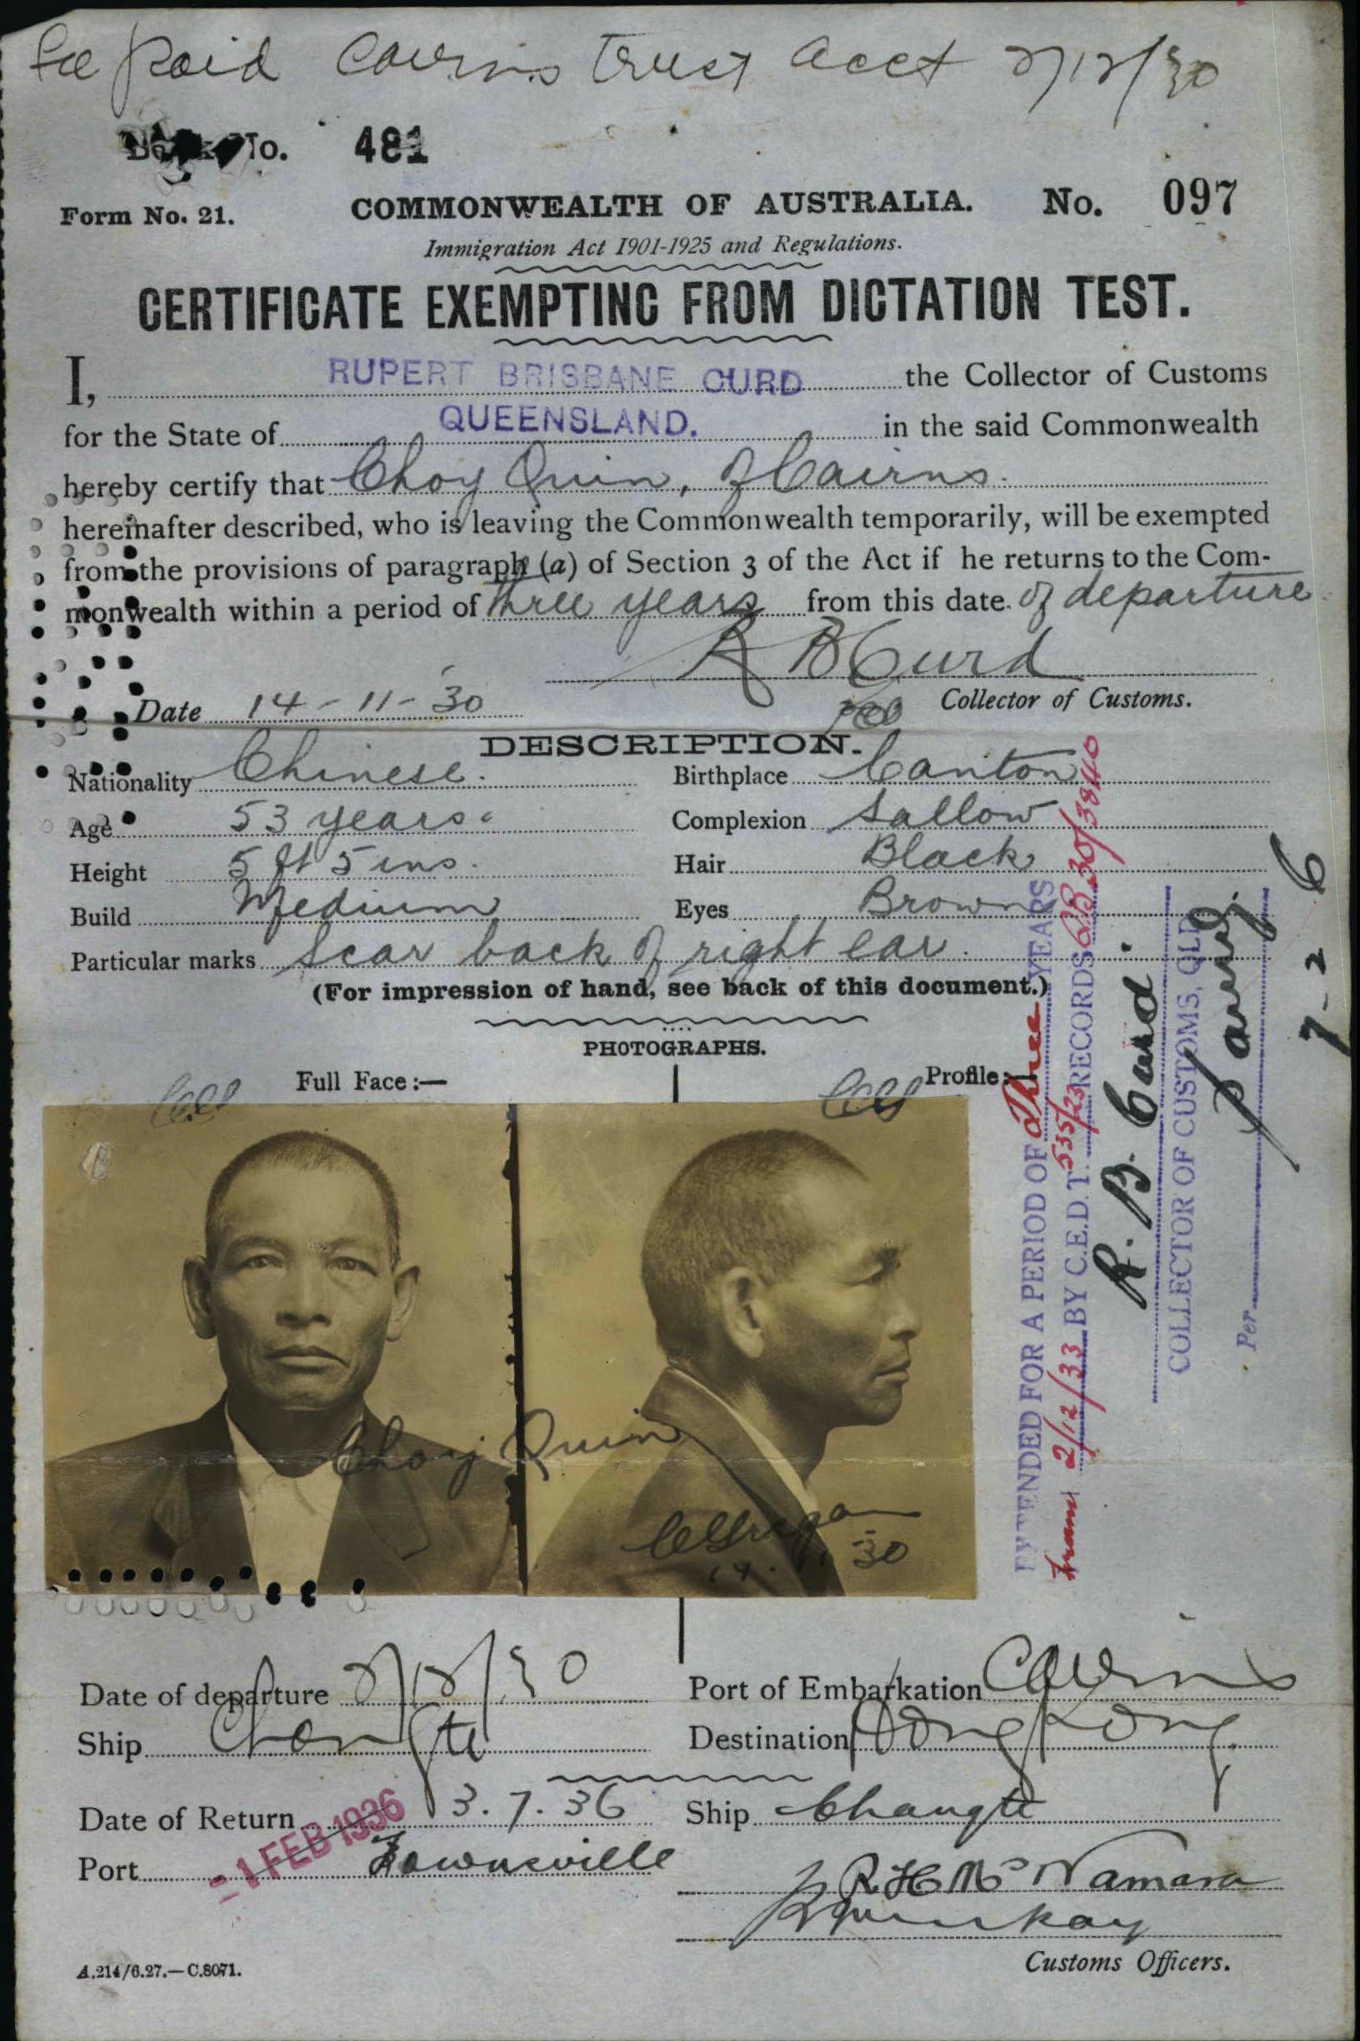 Fee paid Cairns Trust Acct 2/12/30
Book No. 481
Form No. 21. COMMONWEALTH OF AUSTRALIA. No. 097
Immigration Act 1901-1925 and Regulations.
CERTIFICATE EXEMPTING FROM DICTATION TEST.
I, RUPERT BRISBANE CURD the Collector of Customs
for the State of QUEENSLAND. in the said Commonwealth
hereby certify that Choy Quin, of Cairns.
hereinafter described, who is leaving the Commonwealth temporarily, will be exempted
from the provisions of paragraph (a) of Section 3 of the Act if he returns to the Com-
monwealth within a period of three years from this date of departure
R B Curd
Date 14-11-30 Collector of Customs.
DESCRIPTION.
Nationality Chinese. Birthplace Canton
Age 53 years. Complexion Sallow
Height 5 ft 5 ins. Hair Black
Build Medium Eyes Brown
Particular marks Scar back of right ear.
(For impression of hand, see back of this document.)
PHOTOGRAPHS.
Full Face:— Profile:—
Choy Quin
30
EXTENDED FOR A PERIOD OF Three YEARS
from 2/12/33 BY C.E.D.T. 535/23 RECORDS 30/3840
R. B. Curd.
COLLECTOR OF CUSTOMS, QLD
Per
7-2-6
Date of departure 2/12/30 Port of Embarkation Cairns
Ship Changte Destination Hong Kong.
Date of Return 3.7.36 Ship Changte
-1 FEB 1936
Port Townsville
R H McNamara
Customs Officers.
A.214/6.27.—C.8071.